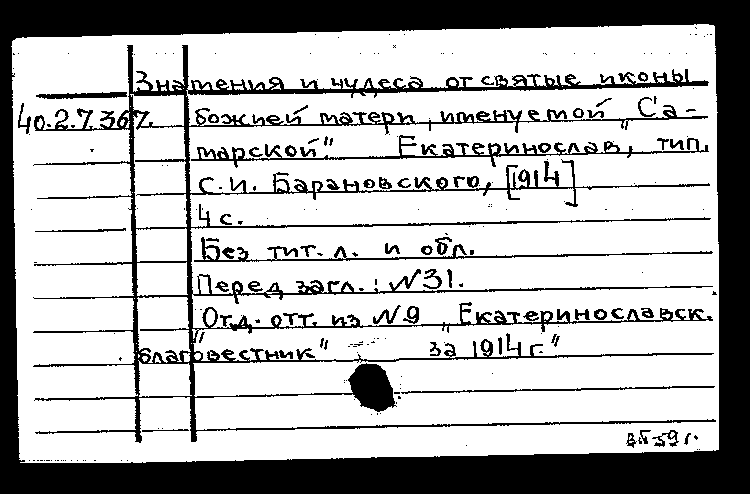 Знамения и чудеса от святые иконы
40.2.7.367. божией матери, именуемой „Са-
марской." Екатеринослав, тип.
С.И. Барановского, [1914]
4 с.
Без тит. л. и обл.
Перед загл.: №31.
Отд. отт. из №9 „Екатеринославск.
благовестник" за 1914 г."
59 г.